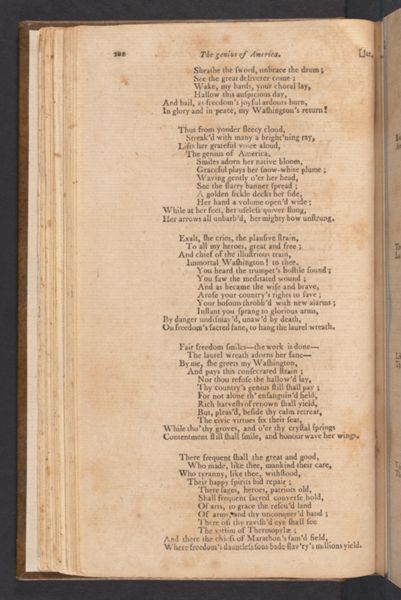 The genius of America. [Jan.
Sheathe the sword, unbrace the drum;
See the great deliverer come;
Wake, my bards, your choral lay,
Hallow this auspicious day,
And hail, as freedom's joyful ardours burn,
In glory and in peace, my Washington's return!
Thus from yonder fleecy cloud,
Streak'd with many a bright'ning ray,
Lifts her grateful voice aloud,
The genius of America.
Smiles adorn her native bloom,
Graceful plays her snow-white plume;
Waving gently o'er her head,
See the starry banner spread;
A golden sickle decks her side,
Her hand a volume open'd wide;
While at her feet, her useless quiver flung,
Her arrows all unbarb'd, her mighty bow unstrung.
Exalt, she cries, the plausive strain,
To all my heroes, great and free;
And chief of the illustrious train,
Immortal Washington! to thee.
You heard the trumpet's hostile sound;
You saw the meditated wound;
And as became the wise and brave,
Arose your country's rights to save;
Your bosoms throbb'd with new alarms;
Instant you sprang to glorious arms,
By danger undismay'd, unaw'd by death,
On freedom's sacred fane, to hang the laurel wreath.
Fair freedom smiles—the work is done—
The laurel wreath adorns her fane—
By me, she greets my Washington,
And pays this consecrated strain;
Nor thou refuse the hallow'd lay,
Thy country's genius still shall pay;
For not alone th' ensanguin'd field,
Rich harvests of renown shall yield,
But, pleas'd, beside thy calm retreat,
The civic virtues fix their seat,
While thro' thy groves, and o'er thy crystal springs
Contentment still shall smile, and honour wave her wings.
There frequent shall the great and good,
Who made, like thee, mankind their care,
Who tyranny, like thee, withstood,
Their happy spirits bid repair;
There sages, heroes, patriots old,
Shall frequent sacred converse hold,
Of arts, to grace the rescu'd land
Of arms, and thy unconquer'd band;
There oft thy ravish'd eye shall see
The victim of Thermopylæ;
And there the chiefs of Marathon's fam'd field,
Where freedom's dauntless sons bade slav'ry's millions yield.